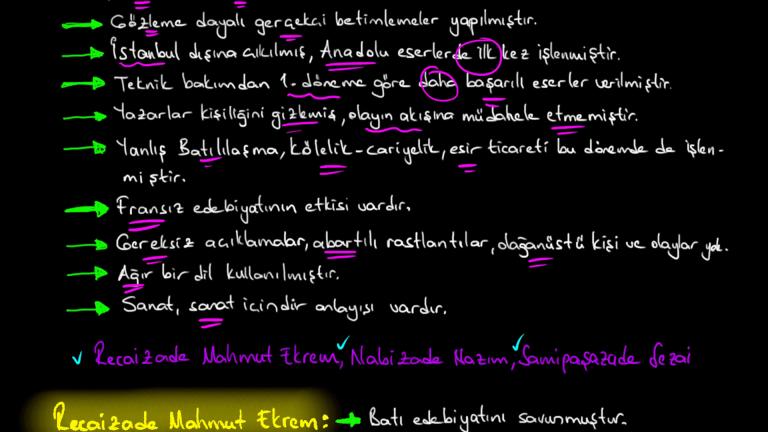 → Gözleme dayalı gerçekçi betimlemeler yapılmıştır.
→ İstanbul dışına çıkılmış, Anadolu eserlerde ilk kez işlenmiştir.
→ Teknik bakımdan 1. döneme göre daha başarılı eserler verilmiştir.
→ Yazarlar kişiliğini gizlemiş, olayın akışına müdahele etmemiştir.
→ Yanlış Batılılaşma, kölelik-cariyelik, esir ticareti bu dönemde de işlen-
miştir.
→ Fransız edebiyatının etkisi vardır.
→ Gereksiz açıklamalar, abartılı rastlantılar, doğanüstü kişi ve olaylar yok.
→ Ağır bir dil kullanılmıştır.
→ Sanat, sanat içindir anlayışı vardır.
✓ Recaizade Mahmut Ekrem, ✓ Nabizade Nazım, ✓ Samipaşazade Sezai
Recaizade Mahmut Ekrem: → Batı edebiyatını savunmuştur.